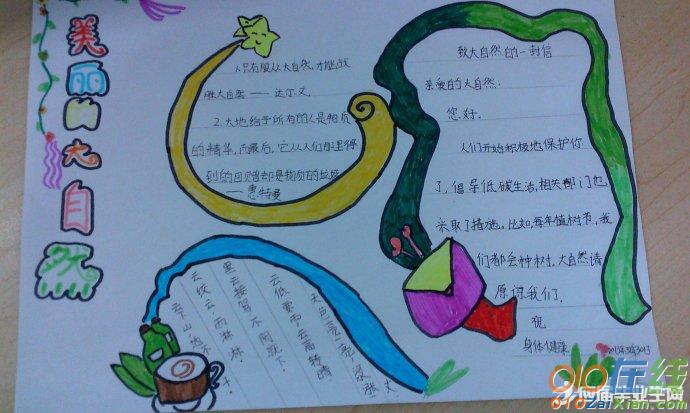 美丽的大自然
人只有服从大自然,才能战
胜大自然 —— 达尔文
2.大地给予所有的人是物质
的精华,而最后,它从人们那里得
到的回赠却是物质的垃圾
—— 惠特曼
致大自然的一封信
亲爱的大自然:
您好.
人们开始积极地保护你
了,倡导低碳生活,相关部门也
采取了措施.比如,每年植树节,我
们都会种树.大自然请
原谅我们.
祝
身体健康
2013年3月30日
天色亮一亮,
云低要雨,云高转晴
墨云接驾,不闻歌下.
云绞云,雨淋淋.
010在线
010zaixian.com